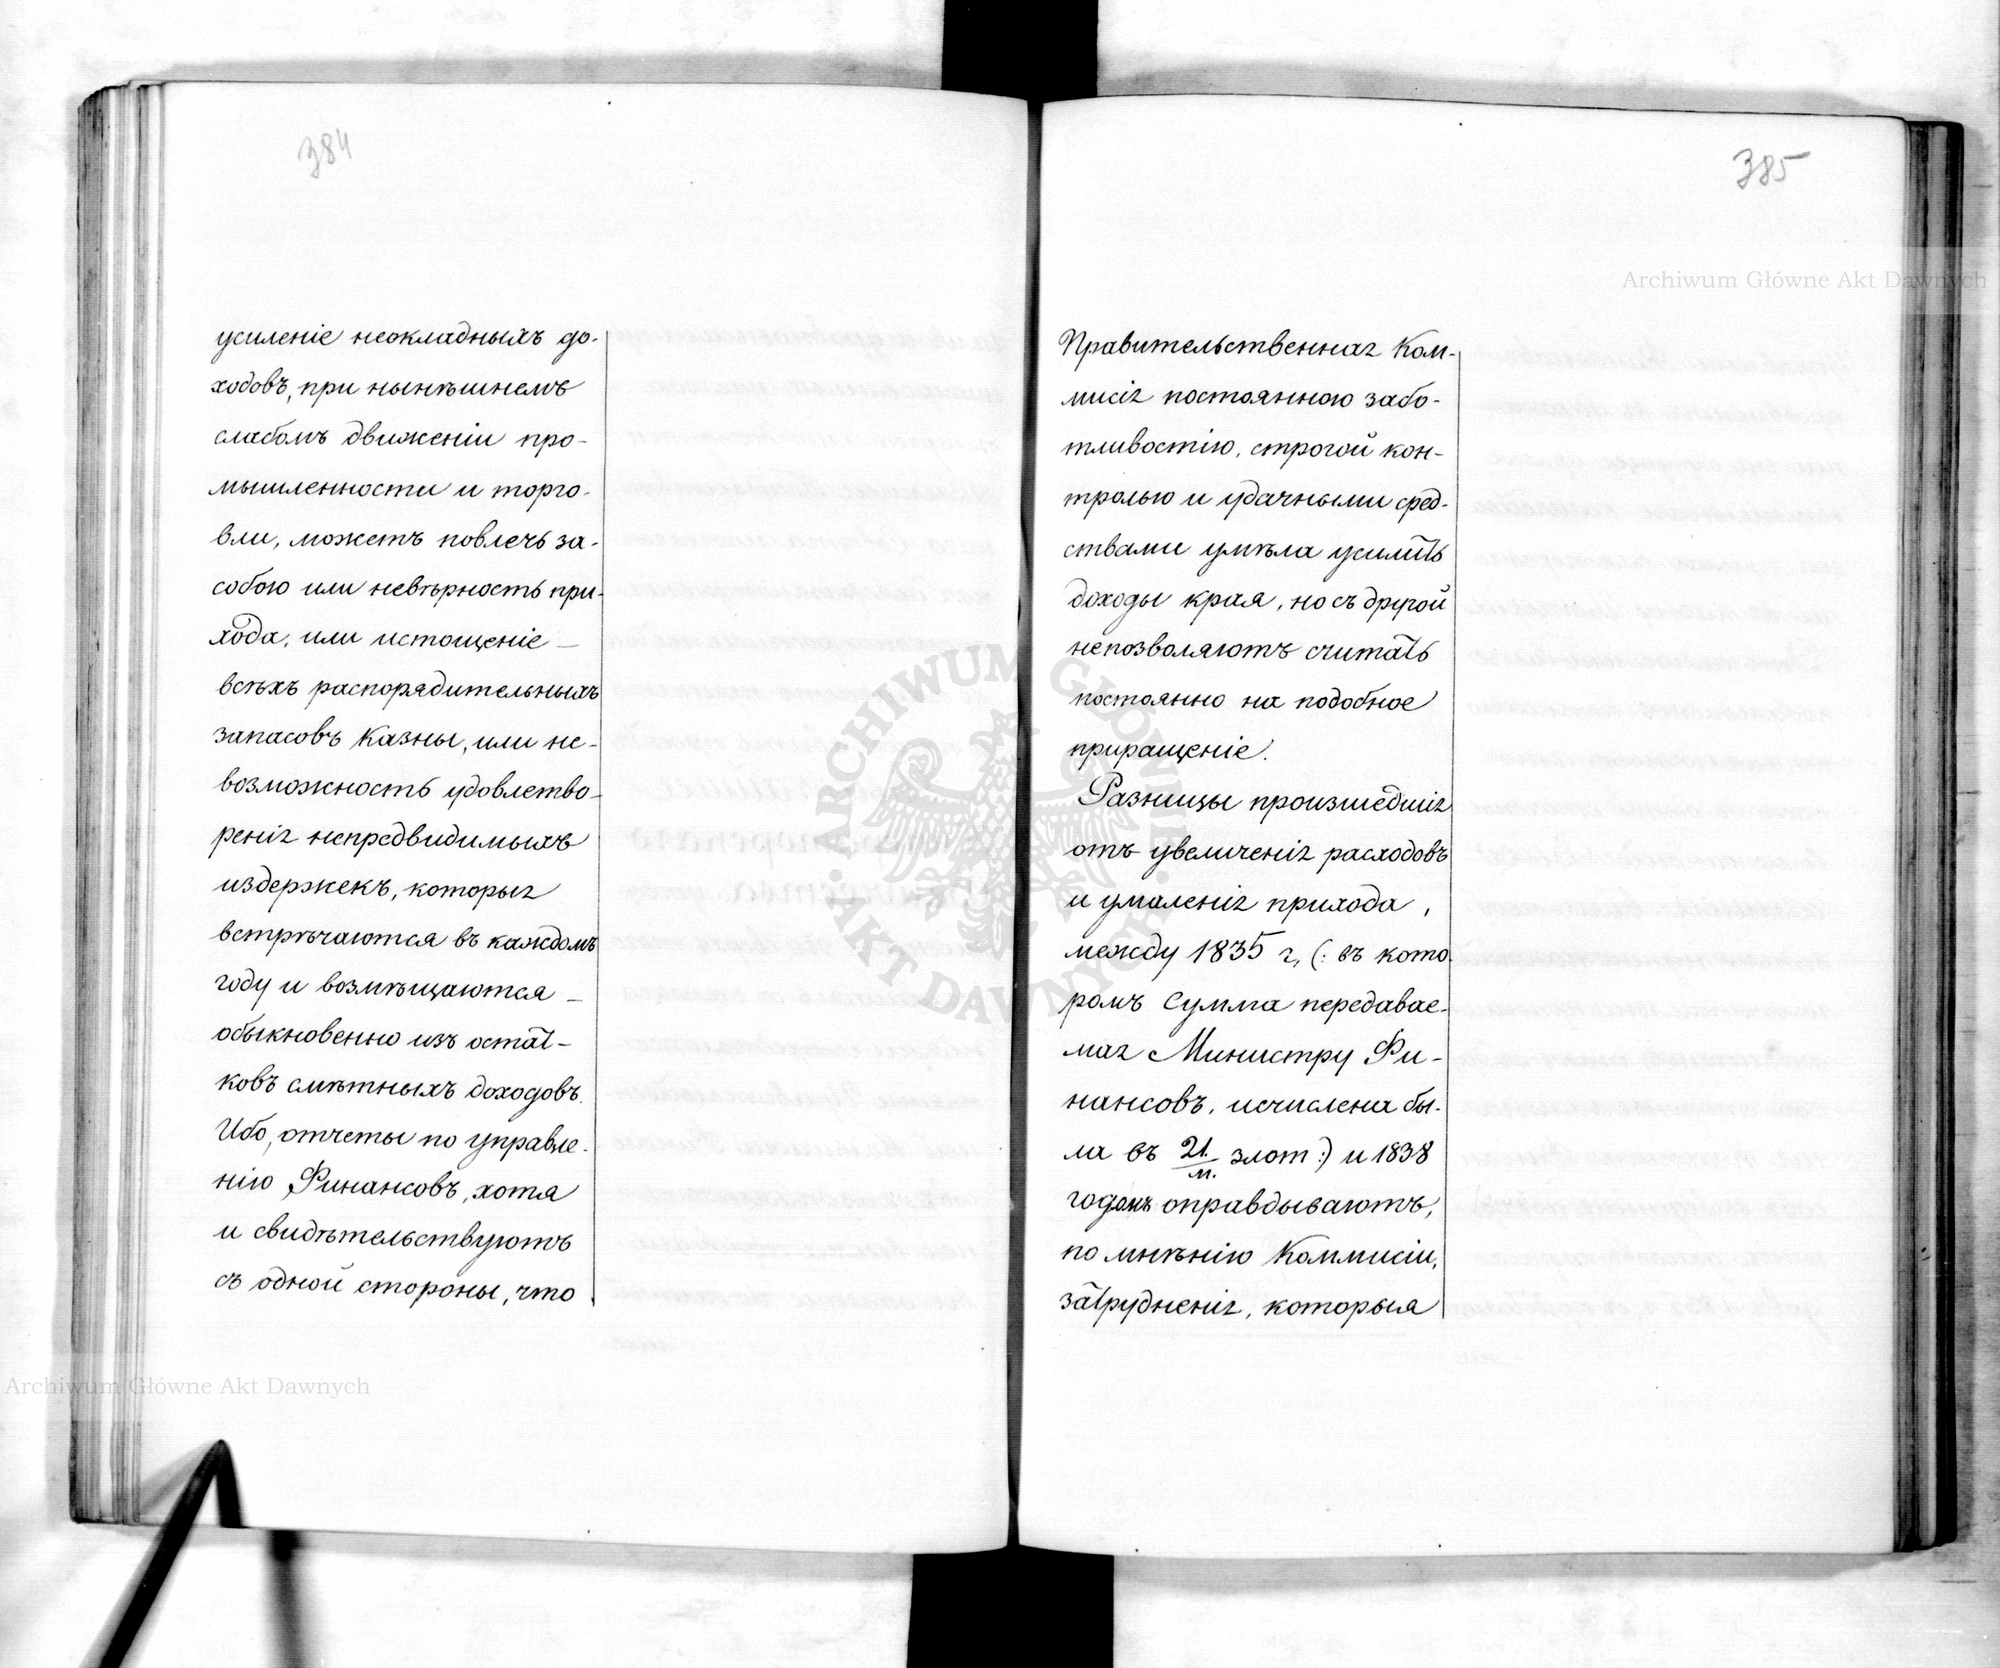 384
усиленіе неокладныхъ до-
ходовъ, при нынѣшнемъ
слабомъ движеніи про-
мышленности и торго-
вли, можетъ повлечь за-
собою или невѣрность при-
хода, или истощеніе —
всѣхъ распорядительныхъ
запасовъ Казны, или не-
возможность удовлетво-
ренія непредвидимыхъ
издержекъ, которыя
встрѣчаются въ каждомъ
году и возмѣщаются —
обыкновенно изъ остат-
ковъ смѣтныхъ доходовъ.
Ибо, отчеты по управле-
нію Финансовъ, хотя
и свидѣтельствуютъ
съ одной стороны, что
385
Правительственная Ком-
мисія постоянною забо-
тливостію, строгой кон-
тролью и удачными сред-
ствами умѣла усилить
доходы края, но съ другой
непозволяютъ считать
постоянно на подобное
приращеніе.
Разницы произшедшія
отъ увеличенія расходовъ
и умаленія прихода,
между 1835 г, (: въ кото-
ромъ Сумма передавае-
мая Министру Фи-
нансовъ, исчислена бы-
ла въ 21/м. злот :) и 1838
годомъ оправдываютъ,
по мнѣнію Коммисіи,
затрудненія, которыя
Archiwum Główne Akt Dawnych
Archiwum Główne Akt Dawnych
ARCHIWUM GŁÓWNE AKT DAWNYCH